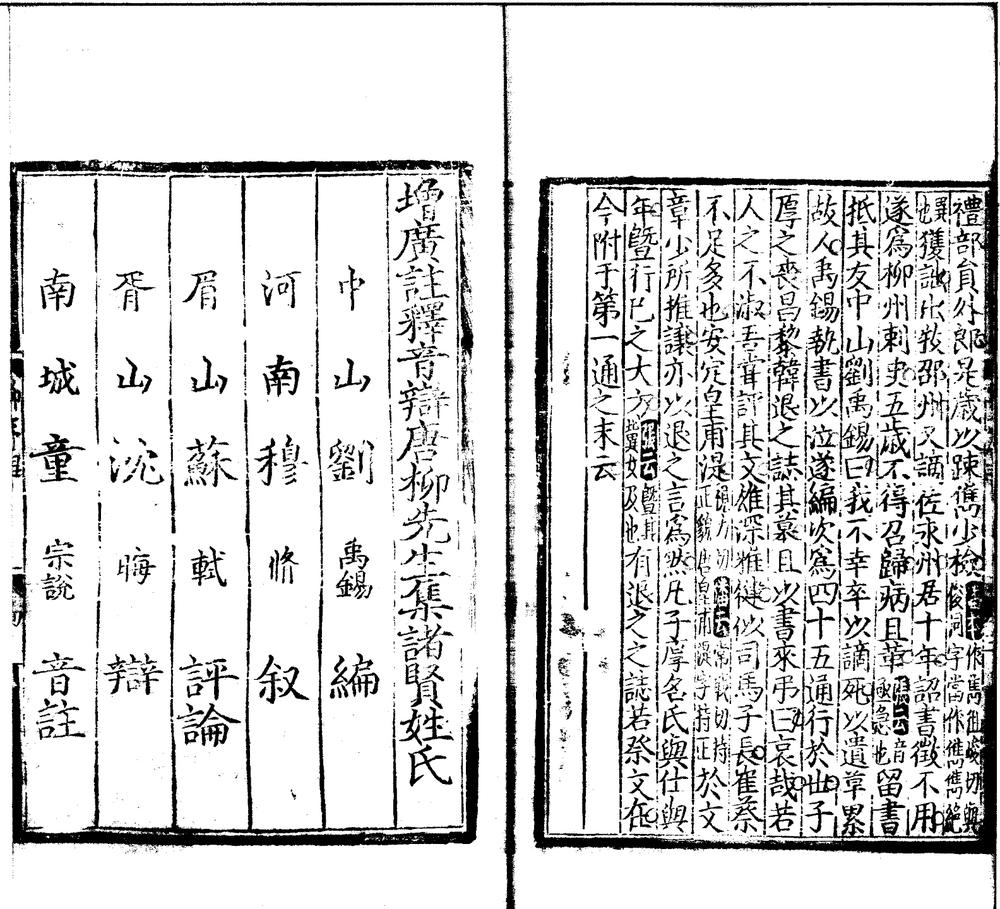 禮部員外郎是歲以疎雋少檢
獲訕出牧邵州又謫佐永州居十年詔書徵不用
遂爲柳州刺史五歲不得召歸病且革留書
抵其友中山劉禹錫曰我不幸卒以謫死以遺草累
故人禹錫執書以泣遂編次爲四十五通行於世子
厚之喪昌黎韓退之誌其墓且以書來弔曰哀哉若
人之不淑吾嘗評其文雄深雅健似司馬子長崔蔡
不足多也安定皇甫湜於文
章少所推讓亦以退之言爲然凡子厚名氏與仕與
年曁行己之大方有退之之誌若祭文在
今附于第一通之末云
增廣註釋音辯唐柳先生集諸賢姓氏
中山劉禹錫編
河南穆脩叙
眉山蘇軾評論
胥山沈晦辯
南城童宗說音註